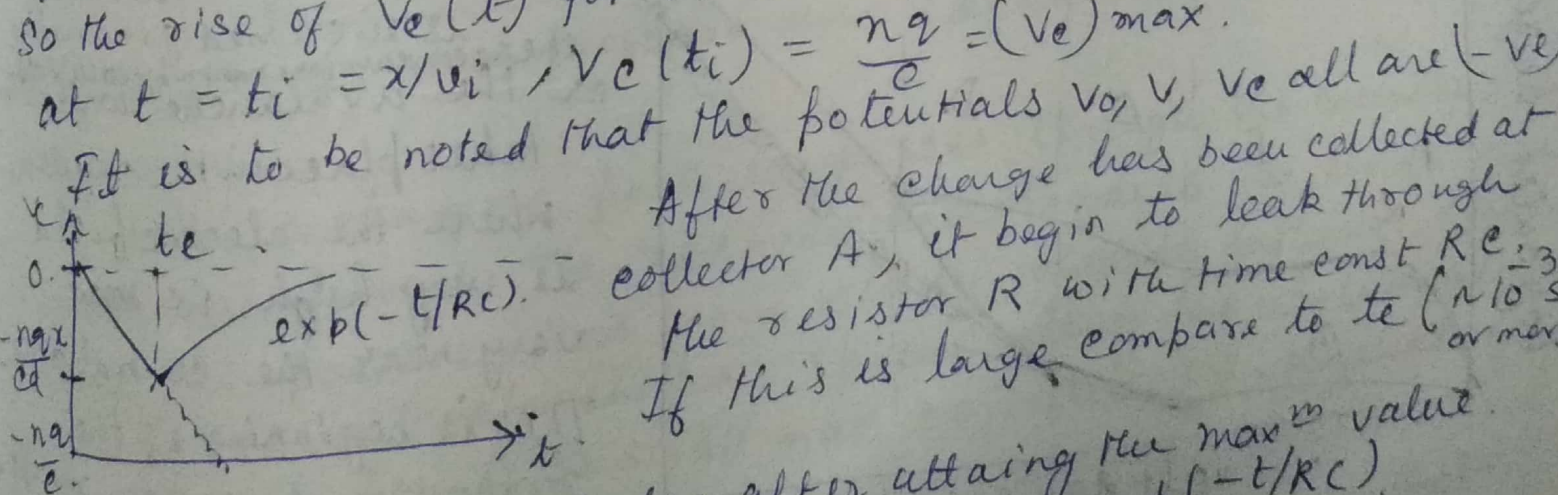 So the rise of Ve(t) for
at t = ti = x/vi , Vc(ti) = nq/c = (Ve)max.
It is to be noted that the potentials Vo, V, Ve all are (-ve
After the charge has been collected at
te
0.
collector A, it begin to leak through
exp(-t/RC).
the resistor R with time const RC.
-nqx/cd
If this is large compare to te (~10-3 s
or mor
-nq/c.
t.
after attaing the maxm value.
(-t/RC)